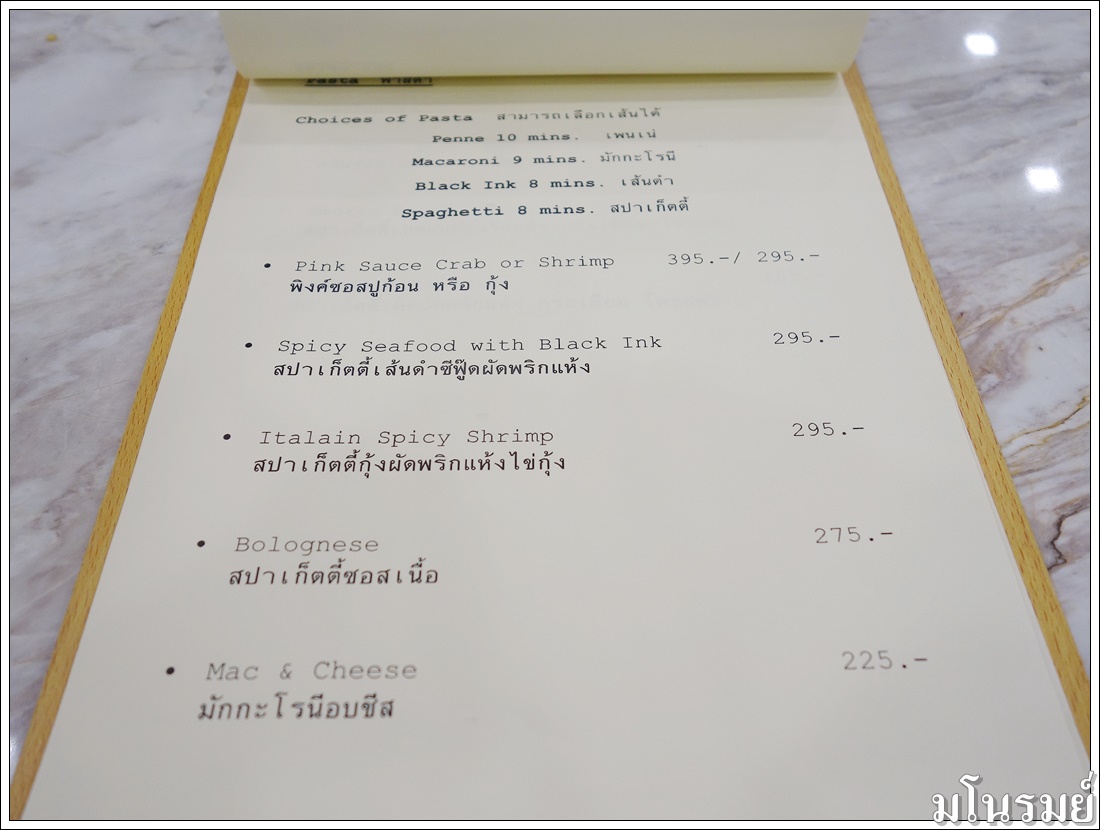 Pasta พาสต้า
Choices of Pasta สามารถเลือกเส้นได้
Penne 10 mins. เพนเน่
Macaroni 9 mins. มักกะโรนี
Black Ink 8 mins. เส้นดำ
Spaghetti 8 mins. สปาเก็ตตี้
• Pink Sauce Crab or Shrimp 395.-/ 295.-
พิงค์ซอสปูก้อน หรือ กุ้ง
• Spicy Seafood with Black Ink 295.-
สปาเก็ตตี้เส้นดำซีฟู๊ดผัดพริกแห้ง
• Italain Spicy Shrimp 295.-
สปาเก็ตตี้กุ้งผัดพริกแห้งไข่กุ้ง
• Bolognese 275.-
สปาเก็ตตี้ซอสเนื้อ
• Mac & Cheese 225.-
มักกะโรนีอบชีส
มโนรมย์